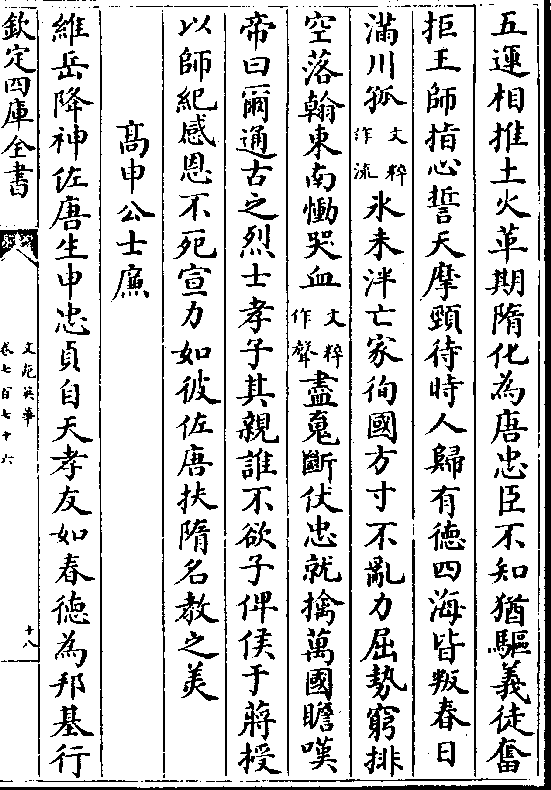 五運相推土火革期隋化為唐忠臣不知猶驅義徒奮
拒王師指心誓天摩頸待時人歸有德四海皆叛春日
滿川孤文粹作流氷未泮亡家徇國方寸不亂力屈勢窮排
空落翰東南慟哭血文粹作聲盡䰟斷伏忠就擒萬國瞻嘆
帝曰爾通古之烈士孝子其親誰不欲子俾侯于蔣授
以師紀感恩不死宣力如彼佐唐扶隋名教之美
髙申公士亷
維岳降神佐唐生申忠貞自天孝友如春德為邦基行
欽定四庫全書
文苑英華
卷七百七十六
十八